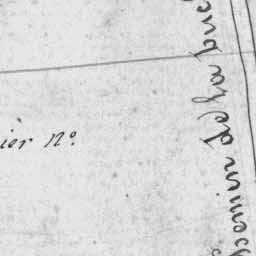 ier N°.
chemin de la buc